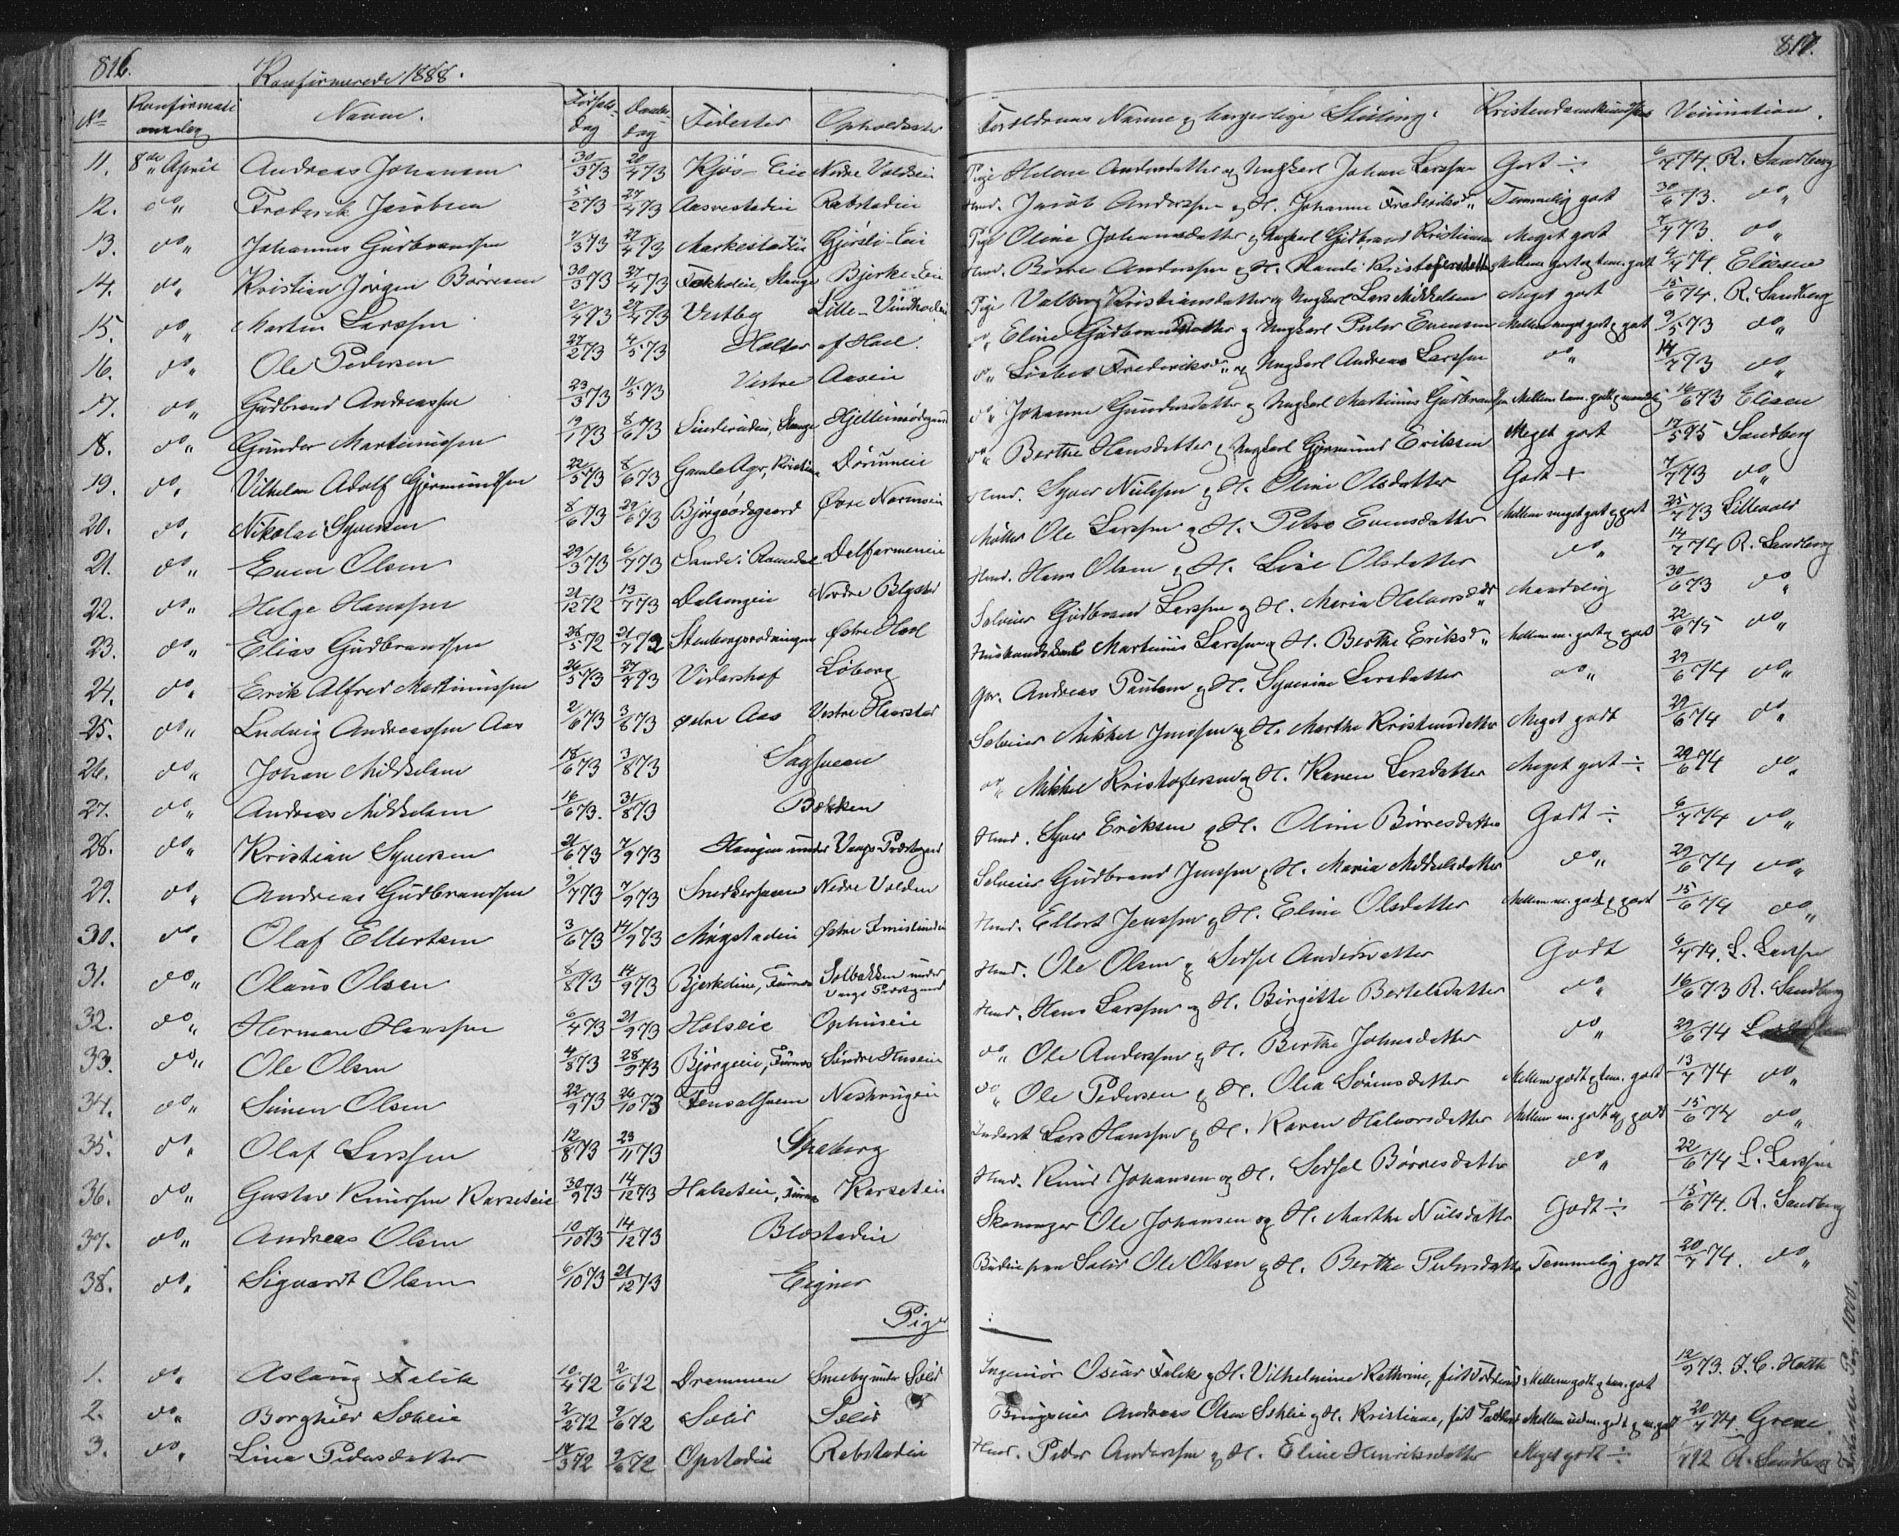 816.
Konfirmerede 1888.
No Konfirmations dag Navn. Fødsels dag Daabs dag Fødested Opholdssted
11. 8de April Andreas Johansen 30/3 73 20/4 73 Kjøs-Eie Nedre Voldeie
12. do Frederik Jacobsen 5/2 73 27/4 73 Aasvestadeie Rebstadeie
13. do Johannes Gudbrandsen 7/3 73 27/4 73 Markestadeie Gjørsli-Eie
14. do Kristian Jørgen Børresen 30/3 73 27/4 73 Stange Bjerke-Eie
15. do Martin Larssen 2/4 73 27/4 73 Vestby Lille-
16. do Ole Pedersen 27/2 73 4/5 73 Holter af Hoel.
17. do Gudbrand Andreassen 23/3 73 11/5 73 Vestre Aaseie
18. do Gunder Martinussen 12/1 73 8/6 73 Stange
19. do Vilhelm Adolf Gjermundsen 22/5 73 8/6 73 Gamle Agr, Kristiania
20. do Nikolai Syversen 8/6 73 29/6 73 Bjørgeødegaard Øvre
21. do Even Olsen 29/3 73 6/7 73 Sande i Romedal
22. do Helge Hanssen 21/12 72 13/7 73 Dalsengeie Nordre
23. do Elias Gudbrandsen 26/5 72 21/7 72 Østre Hoel
24. do Erik Alfred Martinussen 26/5 73 27/7 73 Vidarshof Løberg
25. do Ludvig Andreassen Aas 2/6 73 3/8 73 Østre Aas Vestre Haarstad
26. do Johan Mikkelsen 18/6 73 3/8 73 Sagstuen
27. do Andreas Mikkelsen 16/6 73. 31/8 73 Bækken
28. do Kristian Syversen 21/6 73 7/9 73 Haugen under Vangs Præstegaard
29. do Andreas Gudbrandsen 9/7 73 7/9 73 Snekkerstuen Nedre Volden
30. do Olaf Ellertsen 3/6 73 14/9 73 Mugstadeie Østre
31. do Olaus Olsen 8/8 73 14/9 73 Bjerkeleie, Furnes Solbakken under Vangs Præstegaard
32. do Herman Hanssen 6/4 73 21/9 73 Holseie Ophuseie
33. do Ole Olsen 4/8 73 28/9 73 Bjørgeeie, Furnes Søndre Huseeie
34. do Simen Olsen 22/9 73 26/10 73 Jensalstuen
35. do Olaf Larssen 12/8 73 23/11 73 Spaberg
36. do Gustav Knudssen Karseteie 30/9 73 14/12 73 Halseteie, Furnes Karseteie
37. do Andreas Olsen 10/10 73 14/12 73 Blæstadeie
38. do Sigvardt Olsen 6/10 73 21/12 73 Eigner
Piger
1. do Aslaug Falck 10/4 72 2/6 72 Drammen Smeby under Sælid
2. do Borghild Schlie 2/2 72 9/6 72 Sælid Sælid
3. do Lina Pedersdatter 17/3 72 9/6 72 Opstadeie Rebstadeie
817.
Forældrenes Navne og borgerlige Stilling. Kristendomskundskab Vaccination.
Pige Helene Andersdatter og Ungkarl Johan Larssen Godt ÷ 6/7 74. R. Sandberg
Hmd. Jacob Anderssen og H. Johanne Frederiksd. Temmelig godt 30/6 73. do
Pige Oline Johannesdatter og Ungkarl Gudbrand Kristiansen Meget godt 7/7 73. do
Hmd. Børre Anderssen og H. Randi Kristofersdatter Mellem godt og tem. godt 2/7 74. Eliesen
Pige Valborg Kristiansdatter og Ungkarl Lars Mikkelsen Meget godt 15/6 74. R. Sandberg
do Eline Gudbrandsdatter og Ungkarl Peder Evensen Mellem meget godt og godt 9/5 73 do
do Lisbet Frederiksd. og Ungkarl Andreas Larssen do 14/7 73 do
do Johanne Gundersdatter og Ungkarl Martinus Gudbrandsen Mellem tem. godt og maadelig 16/6 73 Eliesen
do Berthe Hansdatter og Ungkarl Gjermund Eriksen Meget godt 17/5 75 Sandberg
Hmd. Syver Nielssen og H. Oline Olsdatter Godt + 7/7 73 do
Møller Ole Larssen og H. Petra Evensdatter Mellem meget godt og godt 25/7 73 Lillevold
Hmd. Hans Olsen og H. Lise Olsdatter do 14/7 74 R. Sandberg
Selveier Gudbrand Larssen og H. Maria Halvorsdtr Maadelig 30/6 73 do
Martinus Larssen og H. Berthe Eriksd. Mellem m. godt og godt 22/6 75 do
Gbr. Andreas Paulsen og H. Syverine Larsdatter do 29/6 74 do
Selveier Mikkel Jenssen og H. Marthe Kristensdatter Meget godt 29/6 74 do
do Mikkel Kristofersen og H. Karen Larsdatter Meget godt ÷ 29/6 74 do
Hmd. Syver Eriksen og H. Oline Børresdatter Godt ÷ 6/7 74 do
Selveier Gudbrand Jenssen og H. Maria Mikkelsdatter do 29/6 74 do
Hmd. Ellert Jenssen og H. Eline Olsdatter Mellem m. godt og godt 15/6 74 do
Hmd. Ole Olsen og Sidsel Andersdatter Godt 6/7 74. L. Larssen
Hmd. Hans Larssen og H. Birgitte Bertelsdatter do 16/6 73 R. Sandberg
do Ole Anderssen og H. Berthe Johnsdatter do 29/6 74
do Ole Pedersen og H. Olea Simensdatter Mellem godt og tem. godt 13/7 74 do
Inderst Lars Hanssen og H. Karen Halvorsdatter Mellem m. godt og godt 15/6 74 do
Hmd. Knud Johansen og H. Sidsel Børresdatter do 22/6 74 L. Larssen
Skomager Ole Johansen og H. Marthe Nilsdatter Godt ÷ 15/6 74. R. Sandberg
Ole Olsen og H. Berthe Pedersdatter Temmelig godt 20/7 74. do
Ingeniør Oscar Falck og H. Vilhelmine Kathrine, født Mellem godt og tem. godt 12/9 73. J. C. Holth
Brugseier Andreas Olsen Schlie og H. Kristiane, født 20/7 74. Greve
Hmd. Peder Anderssen og H. Eline Henriksdatter Meget godt ÷ R. Sandberg